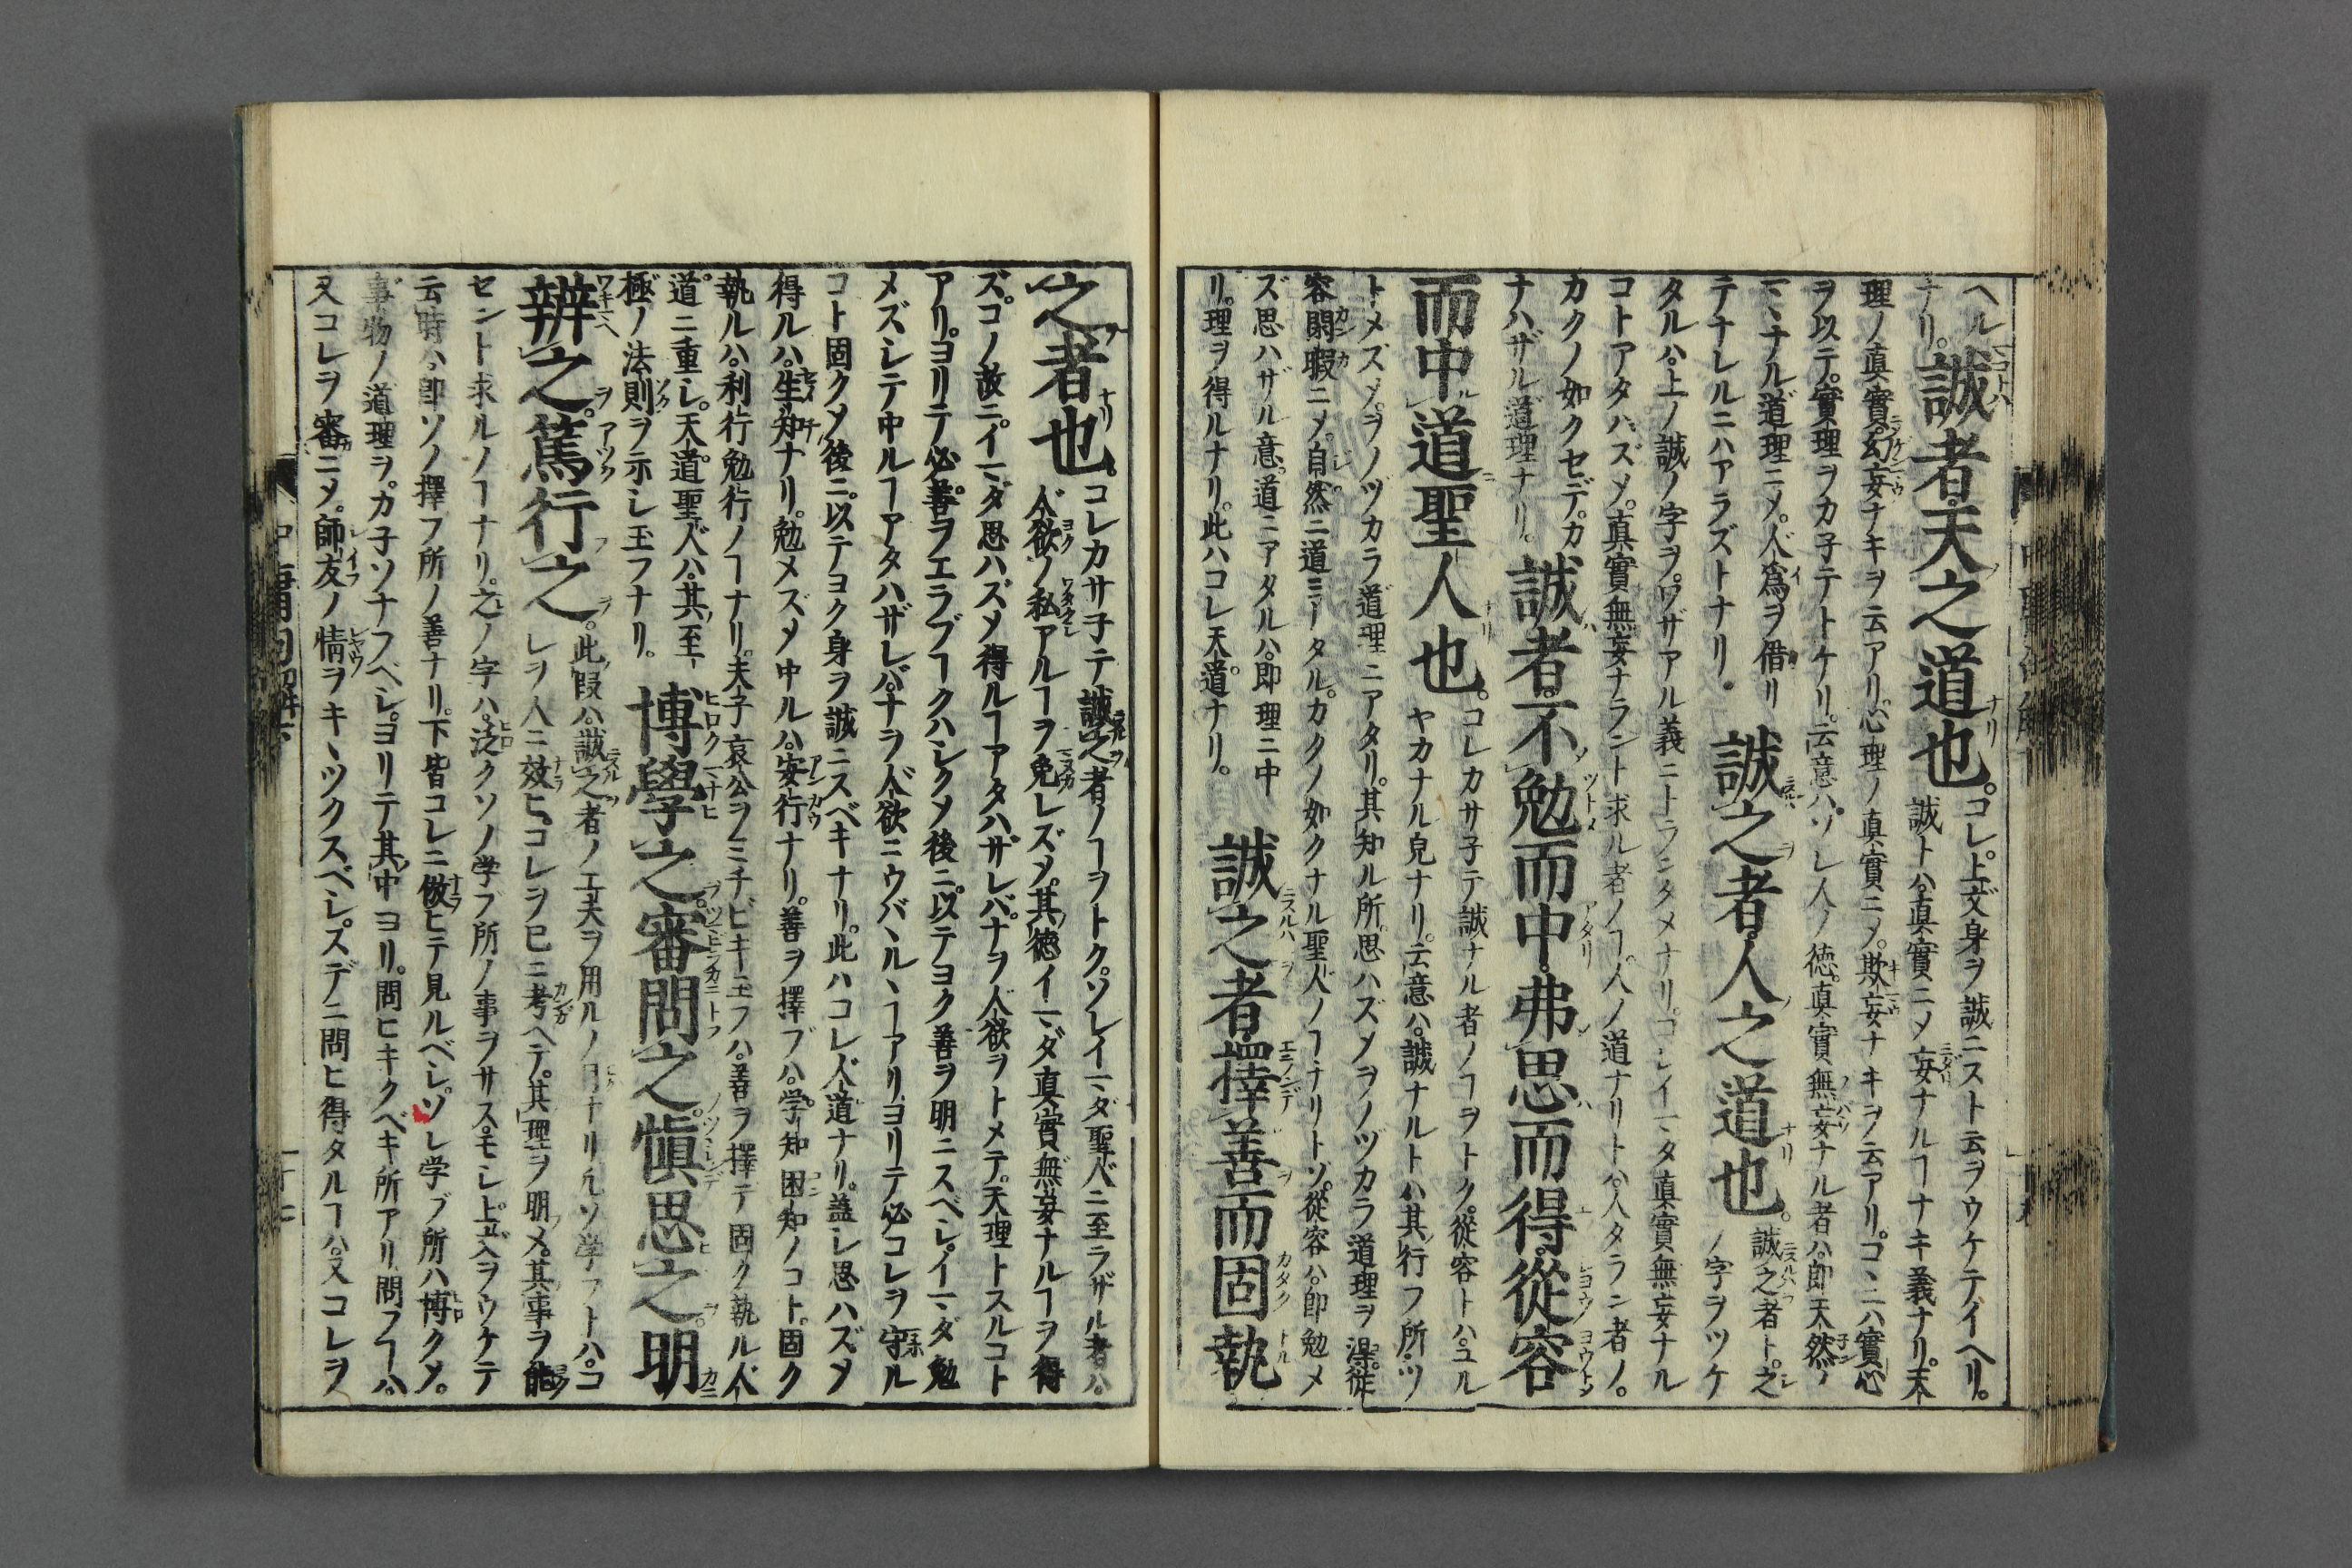 ヘル
ナリ。誠者天之道也。コレ上文身ヲ誠ニスト云ヲウケテイヘリ。
誠トハ真實ニメ妄ナルヿナキ義ナリ。天
理ノ真實幻妄ナキヲ云アリ。心理ノ真實ニメ。欺妄ナキヲ云アリ。コヽニハ實心
ヲ以テ。實理ヲカ子テトケリ。云意ハ。ソレ人ノ徳。真實無妄ナル者ハ。即天然ノ
マヽナル道理ニメ。人爲ヲ借リ
テナレルニハアラズトナリ。誠之者人之道也。誠之者ト。之
ノ字ヲツケ
タルハ。上ノ誠ノ字ヲ。ワザアル義ニトランタメナリ。コレイマタ真實無妄ナル
コトアタハズメ。真實無妄ナラント求ル者ノヿ。人ノ道ナリトハ。人タラン者ノ。
カクノ如クセデ。カ
ナハザル道理ナリ。誠者不勉而中弗思而得從容
而中道聖人也。コレカサ子テ誠ナル者ノヿヲトク。從容トハ。ユル
ヤカナル皃ナリ。云意ハ。誠ナルトハ其行フ所。ツ
トメズメ。ヲノヅカラ道理ニアタリ。其知ル所。思ハズメヲノヅカラ道理ヲ得。從
容閑暇ニメ。自然ニ道ニアタル。カクノ如クナル聖人ノヿナリトゾ。從容ハ。即勉メ
ズ思ハザル意。道ニアタルハ。即理ニ中
リ。理ヲ得ルナリ。此ハコレ天道ナリ。誠之者擇善而固執
之者也。コレカサ子テ誠之者ノヿヲトク。ソレイマダ聖人ニ至ラザル者ハ。
人欲ノ私アルヿヲ免レズメ。其徳イマダ真實無妄ナルヿヲ得
ズ。コノ故ニ。イマダ思ハズメ得ルヿアタハザレバ。ナヲ人欲ヲトメテ。天理トスルコト
アリ。ヨリテ必善ヲエラブヿクハシクメ後ニ。以テヨク善ヲ明ニスベシ。イマダ勉
メズシテ中ルヿアタハザレバ。ナヲ人欲ニウバヽルヽヿアリ。ヨリテ必コレヲ守ル
コト固クメ後ニ。以テヨク身ヲ誠ニスベキナリ。此ハコレ人道ナリ。蓋シ思ハズメ
得ルハ。生知ナリ。勉メズメ中ルハ。安行ナリ。善ヲ擇ブハ。学知困知ノコト。固ク
執ルハ。利行勉行ノヿナリ。夫子哀公ヲミチビキ玉フハ。善ヲ擇デ固ク執ル人
道ニ重シ。天道聖人ハ。其至
極ノ法則ヲ示シ玉フナリ。博學之審問之愼思之明
辨之。篤行之。此段ハ。誠之者ノ工夫ヲ用ルノ目ナリ凡ソ学フトハ。コ
レヲ人ニ效ヒ。コレヲ已ニ考ヘテ。其理ヲ明メ。其事ヲ能
セント求ルノヿナリ。之ノ字ハ。泛クソノ学ブ所ノ事ヲサス。モシ上文ヲウケテ
云時ハ。即ソノ擇フ所ノ善ナリ。下皆コレニ倣ヒテ見ルベシ。ソレ学ブ所ハ博クメ。
事物ノ道理ヲ。カ子ソナフベシ。ヨリテ其中ヨリ。問ヒキクベキ所アリ問フヿハ。
又コレヲ審ニメ。師友ノ情ヲキヽツクスベシ。スデニ問ヒ得タルヿハ。又コレヲ